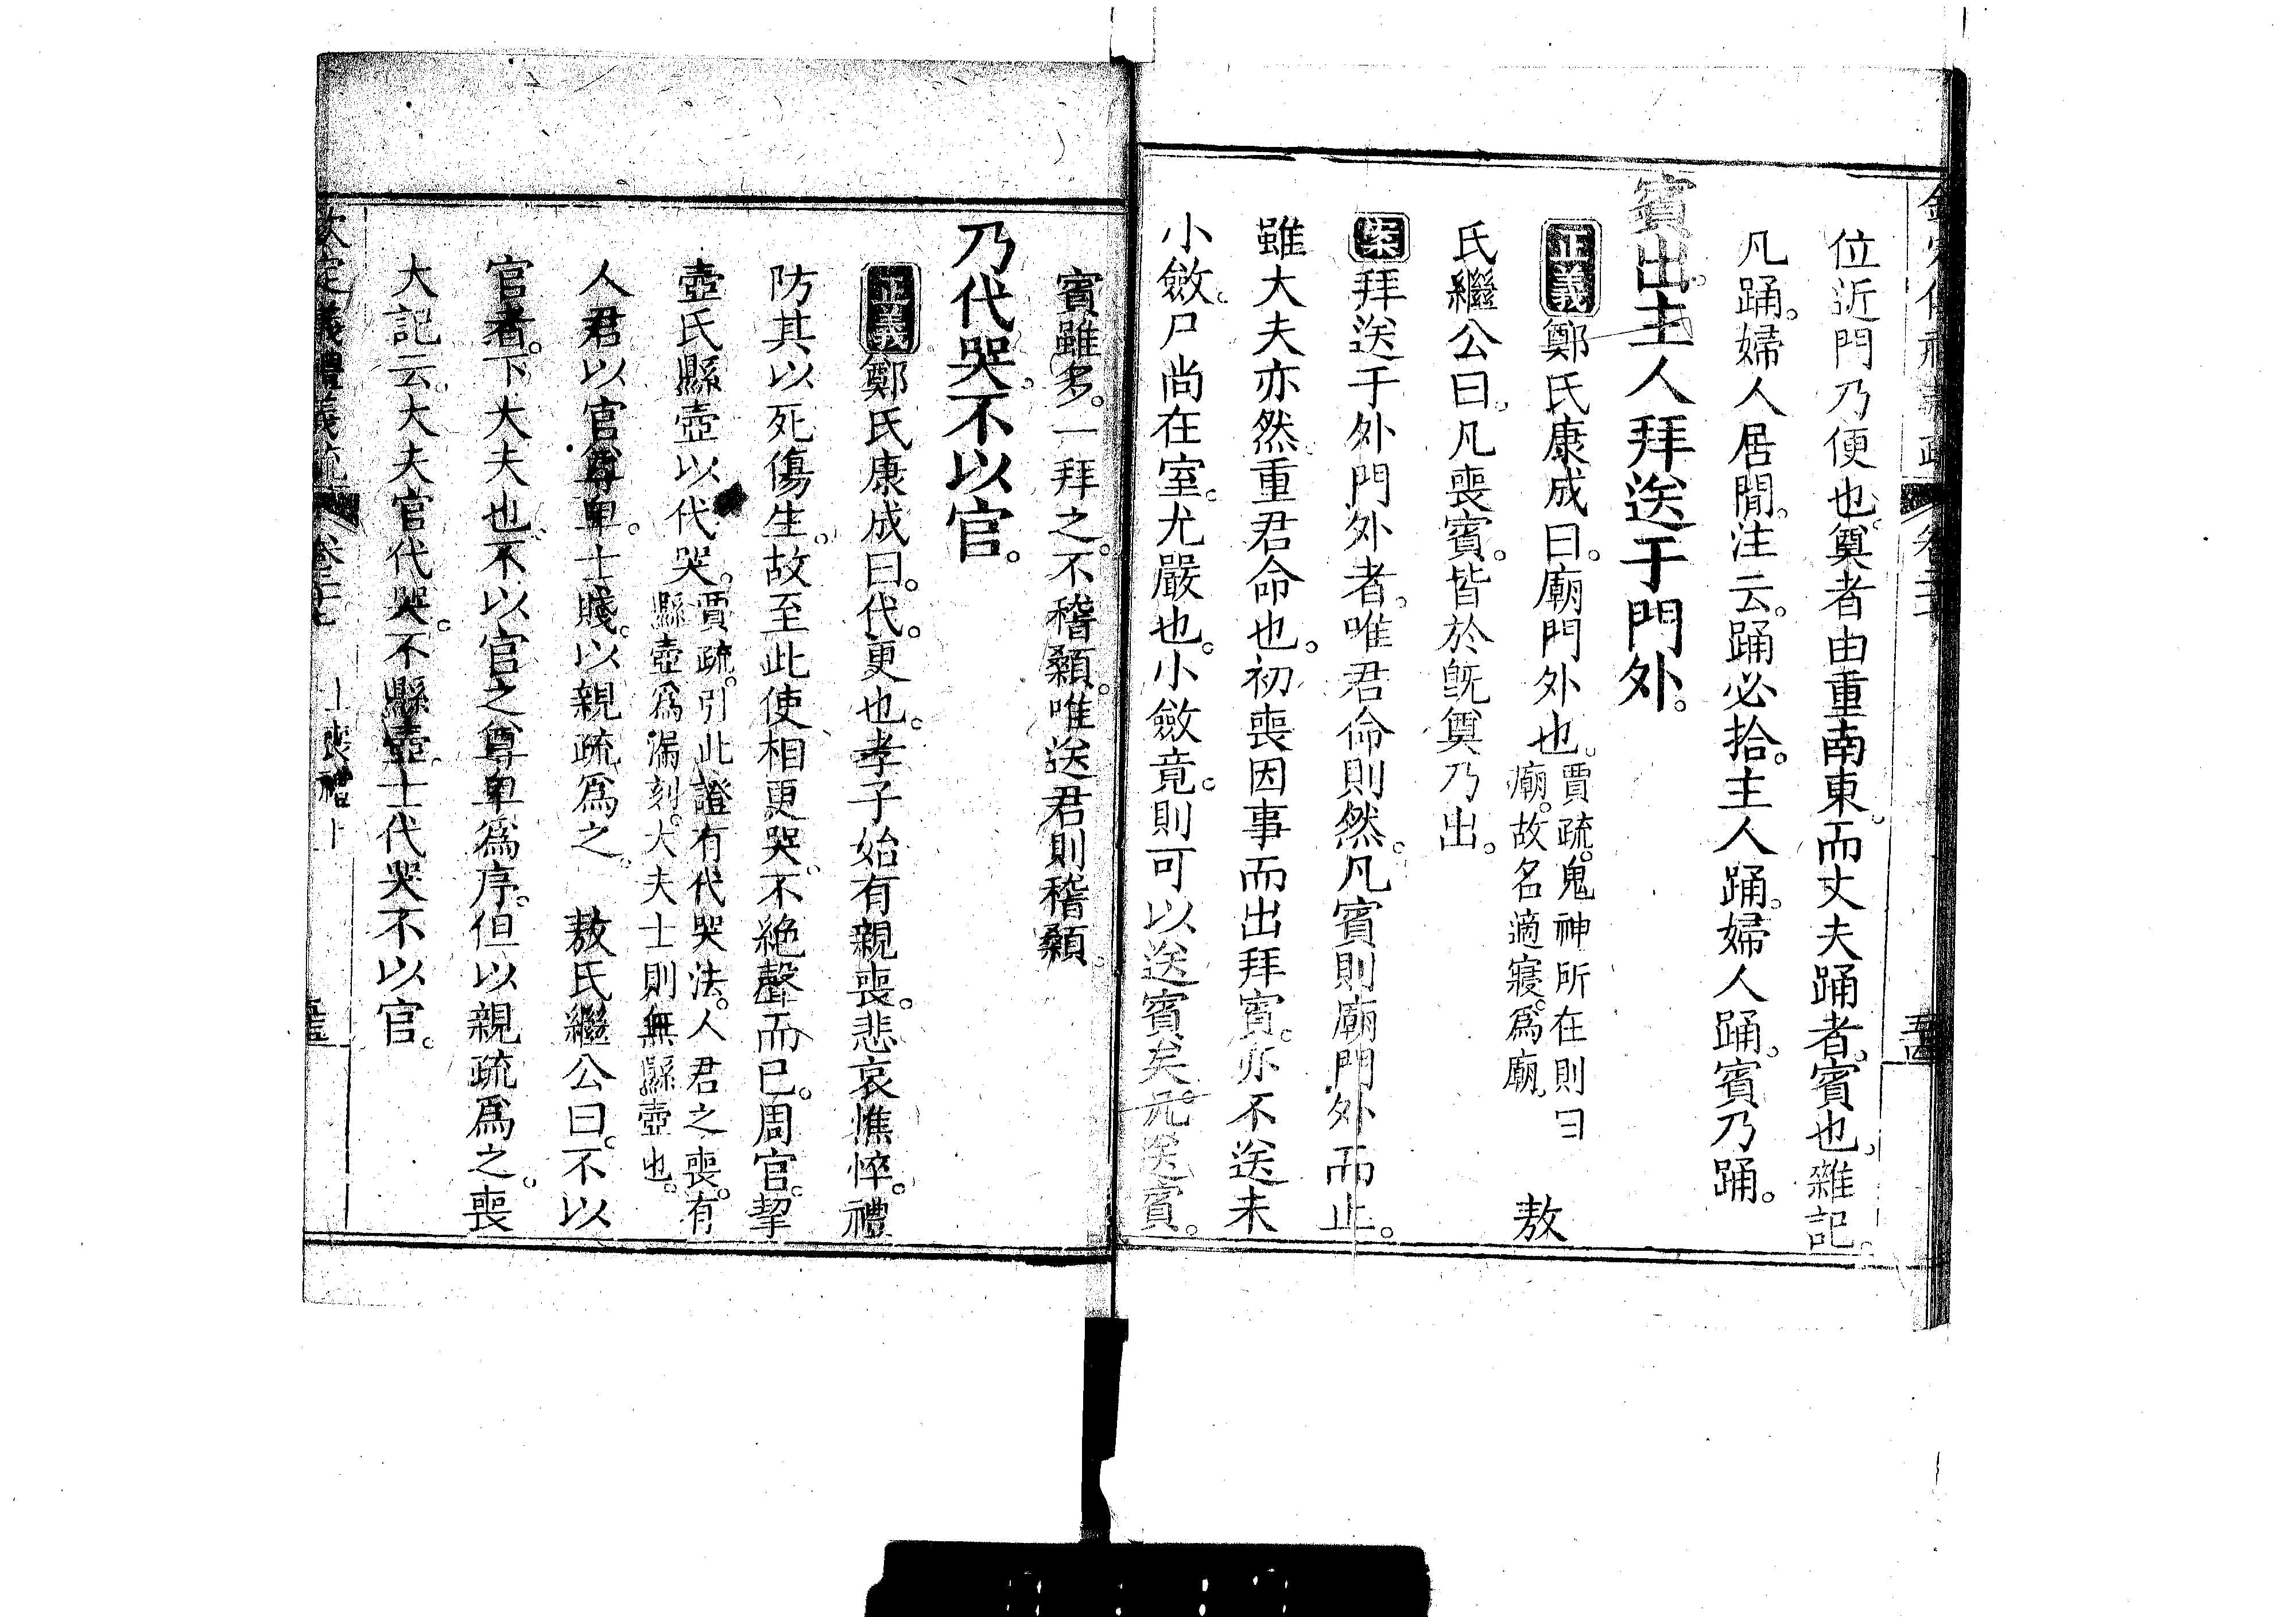 位近門乃便也。奠者由重南東。而丈夫踊者。賓也。雜記。
凡踊。婦人居閒。注云。踊必拾。主人踊。婦人踊。賓乃踊。
賓出。主人拜送于門外。
正義鄭氏康成曰。廟門外也。賈疏。鬼神所在則曰廟。故名適寢。爲廟。 敖
氏繼公曰。凡喪賓。皆於旣奠乃出。
案拜送于外門外者。唯君命則然。凡賓則廟門外而止。
雖大夫亦然。重君命也。初喪因事而出拜賓。亦不送。未
小斂。尸尚在室。尤嚴也。小斂竟。則可以送賓矣。凡送賓。
賓雖多。一拜之。不稽顙。唯送君則稽顙。
乃代哭。不以官。
正義鄭氏康成曰。代。更也。孝子始有親喪。悲哀憔悴。禮
防其以死傷生。故至此使相更哭。不絶聲而已。周官。挈
壺氏縣壺以代哭。賈疏。引此證有代哭法。人君之喪。有縣壺爲漏刻。大夫士則無縣壺也。
人君以官尊卑。士賤。以親疏爲之。 敖氏繼公曰。不以
官者。下大夫也。不以官之尊卑爲序。但以親疏爲之。喪
大記云。大夫官代哭。不縣壺。士代哭不以官。
欽定儀禮義疏 卷二十七 士喪禮上